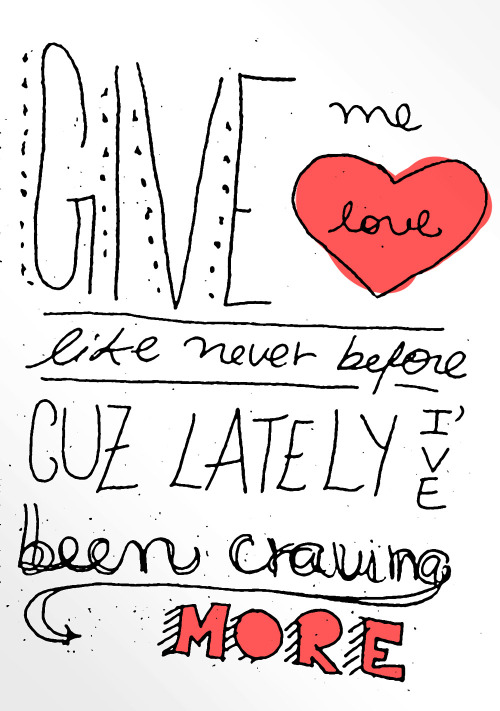 GIVE me
love
like never before
CUZ LATELY I'VE
been craving
MORE